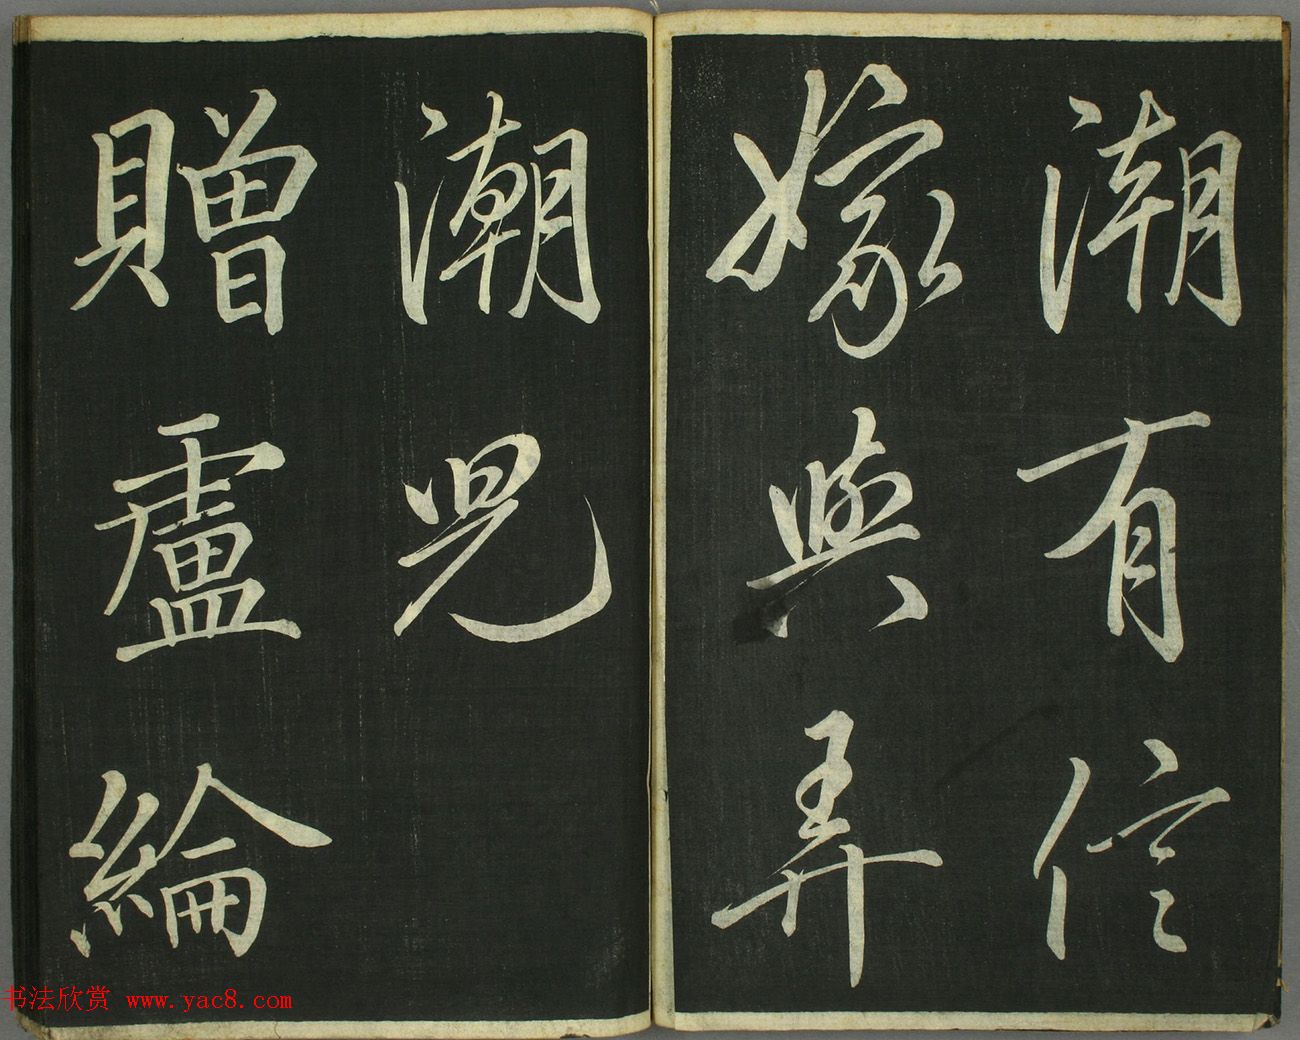 潮有信
嫁與弄
潮兒
贈盧綸
书法欣赏 www.yac8.com